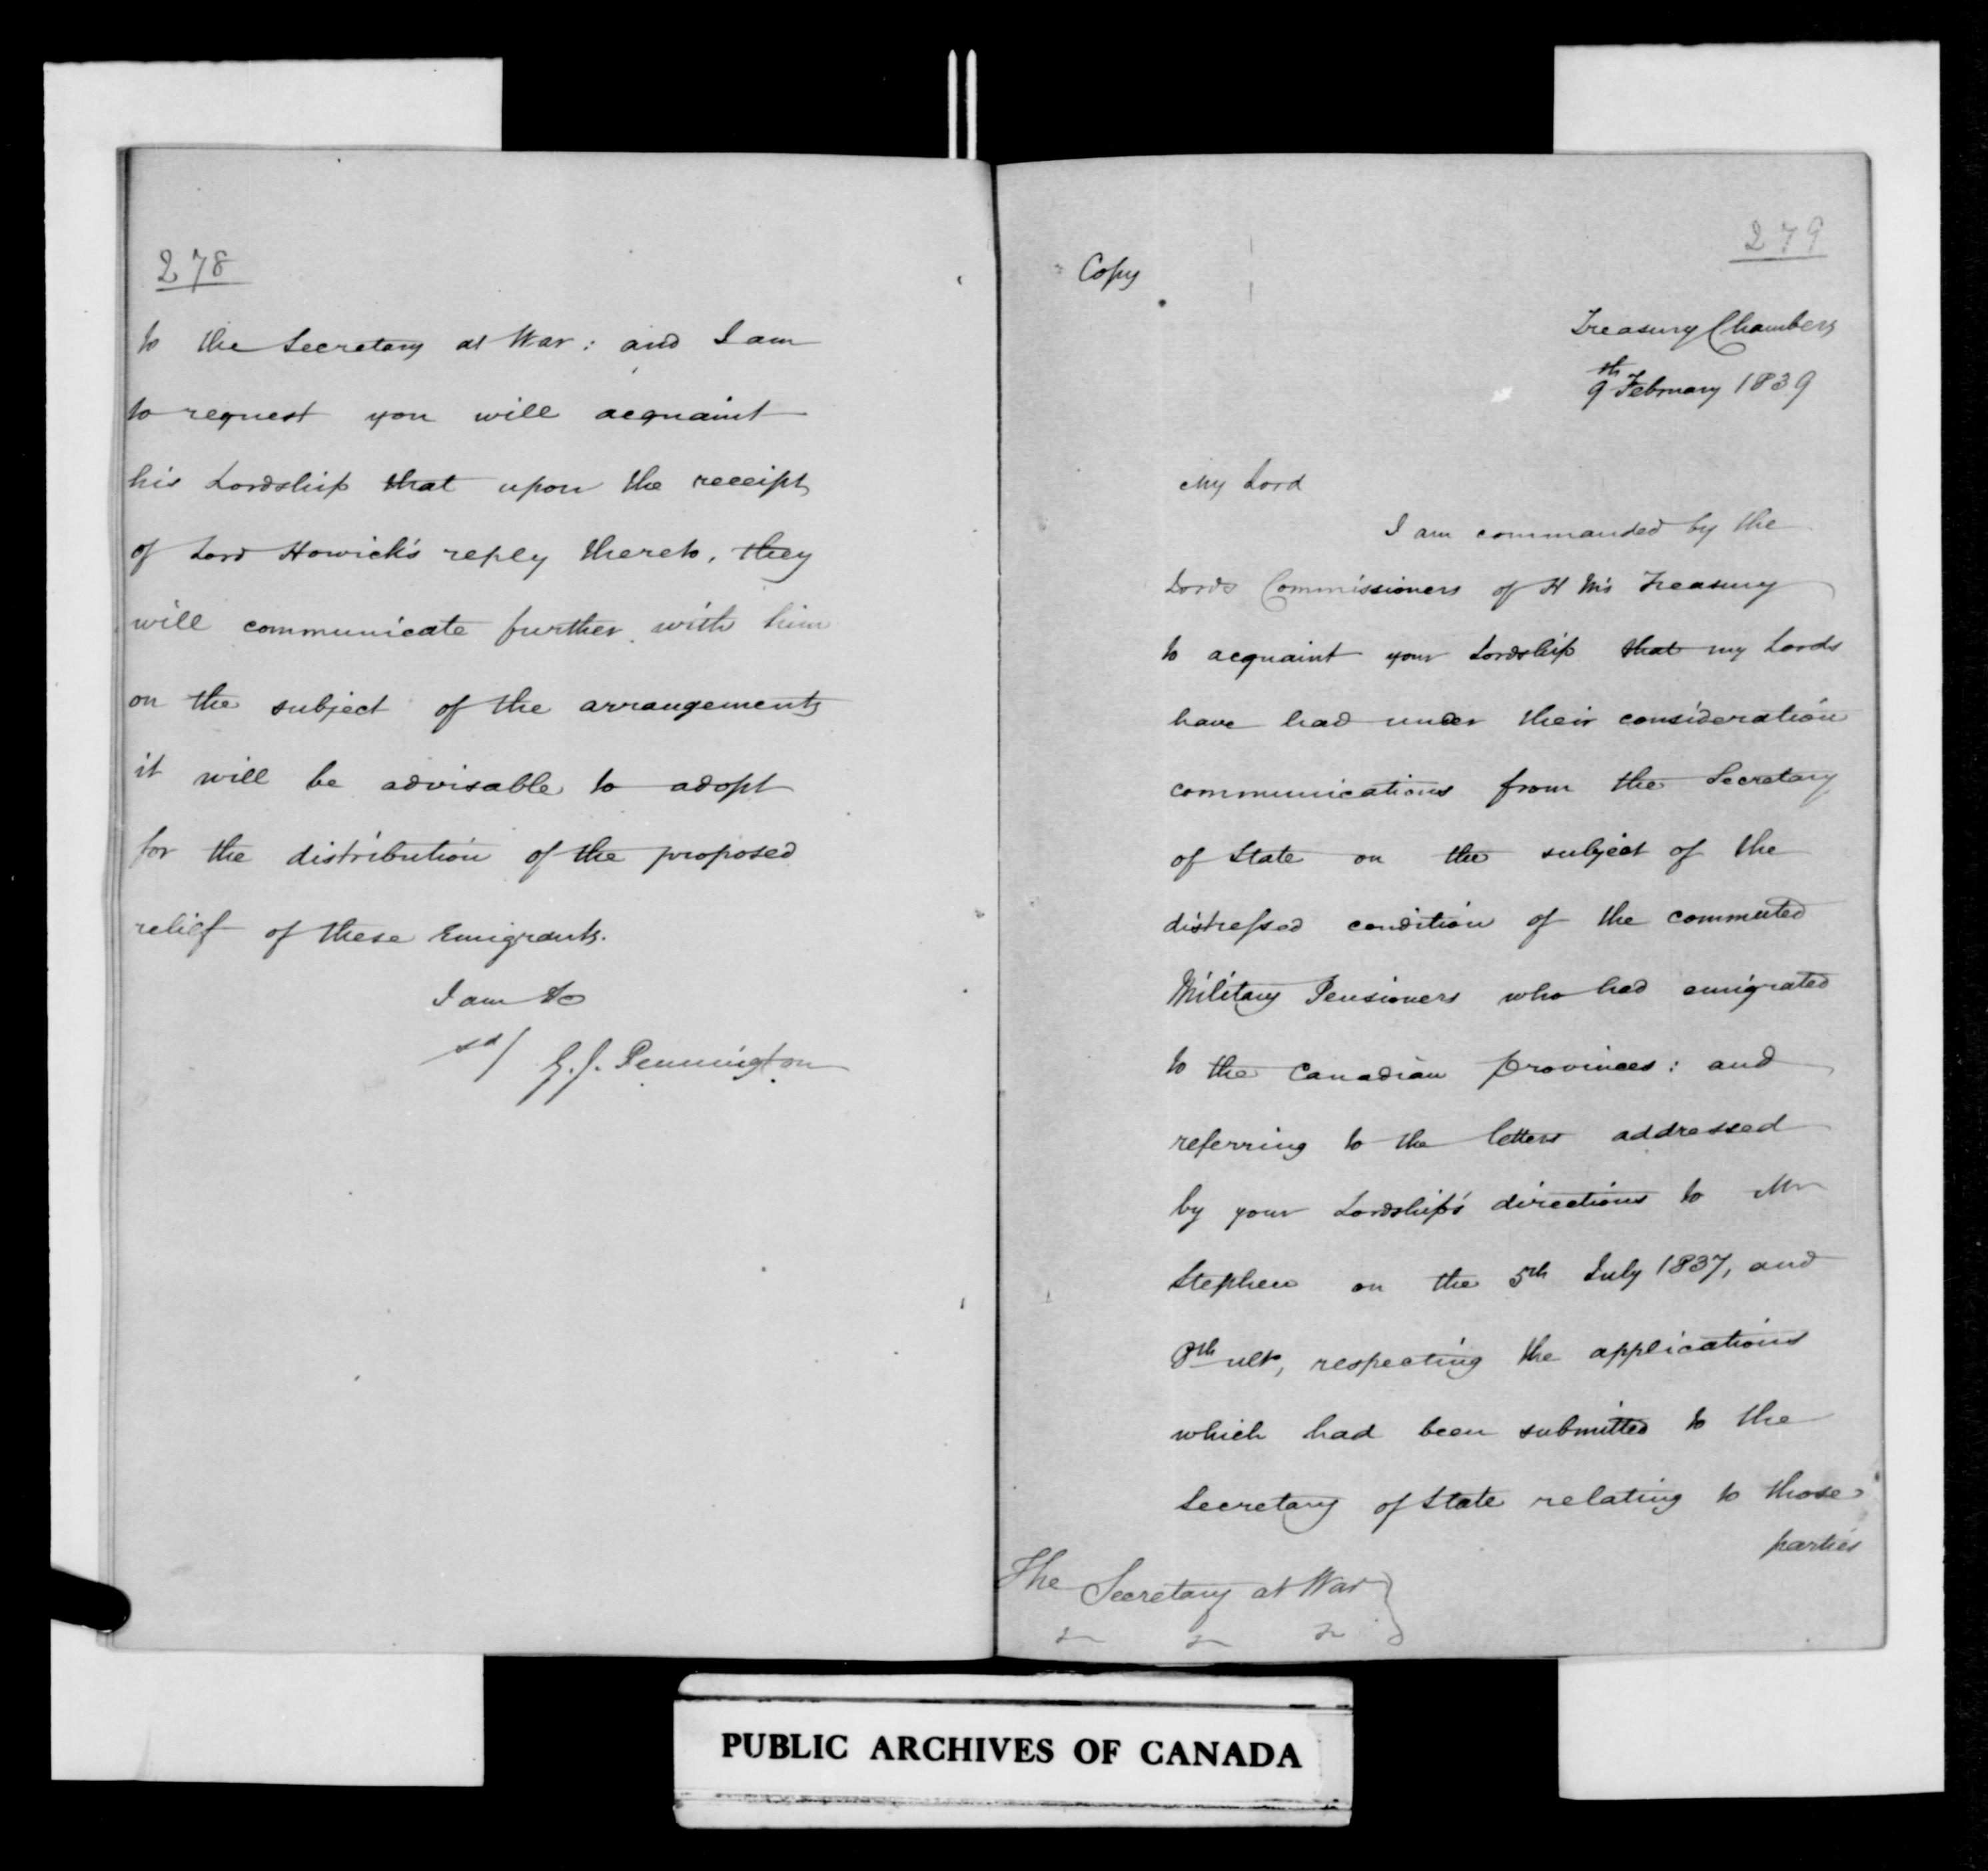 278
to the Secretary at War: and I am
to request you will acquaint
his Lordship that upon the receipt
of Lord Howick's reply thereto, they
will communicate further with him
on the subject of the arrangements
it will be advisable to adopt
for the distribution of the proposed
relief of these Emigrants.
I am &c
sd/ G. J. Pennington
279
Copy
Treasury Chambers
9th February 1839
My Lord
I am commanded by the
Lords Commissioners of H M's Treasury
to acquaint your Lordship that my Lords
have had under their consideration
communications from the Secretary
of State on the subject of the
distressed condition of the commuted
Military Pensioners who had emigrated
to the Canadian provinces: and
referring to the letters addressed
by your Lordship's directions to Mr
Stephen on the 5th July 1837, and
8th ulto, respecting the applications
which had been submitted to the
Secretary of State relating to those
parties
The Secretary at War
PUBLIC ARCHIVES OF CANADA